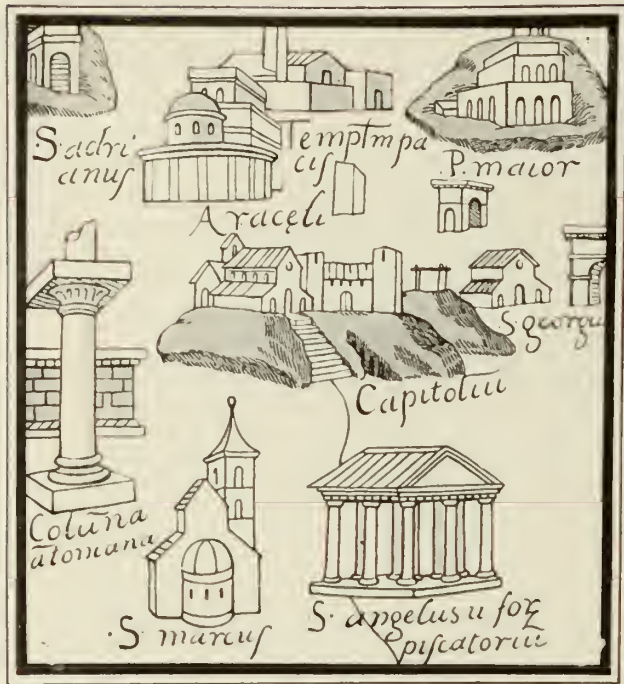 S. adri
anus
Templm pa
cis
P. maior
Araceli
S. georgii
Capitoliū
Colūna
atoniana
S. marcus
S. angelus ū foꝝ
piscatoriū